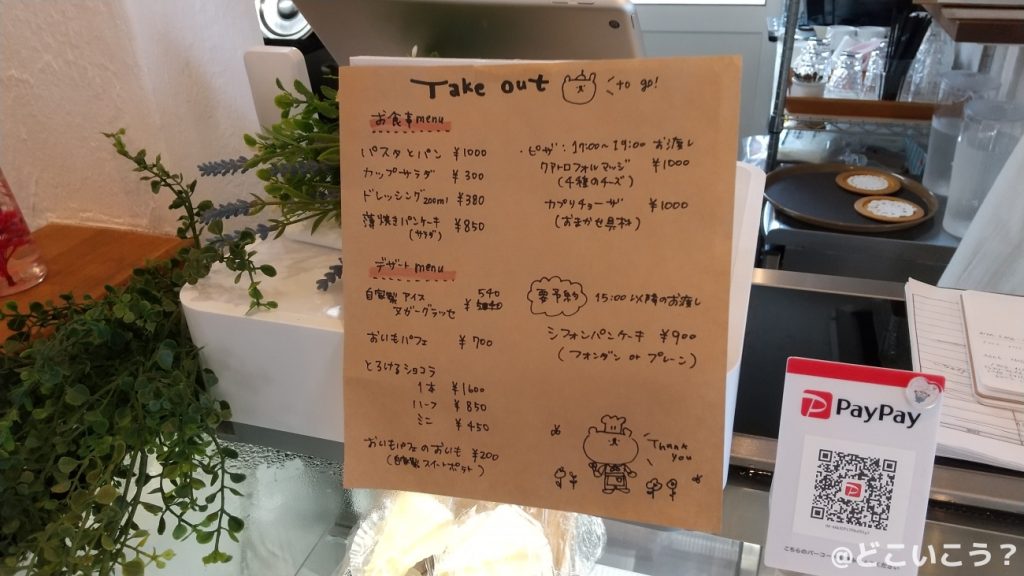 Take out to go!
お食事menu
パスタとパン ¥1000
カップサラダ ¥300
ドレッシング200ml ¥380
薄焼きパンケーキ ¥850
(サラダ)
・ピザ：17:00〜19:00 お渡し
クアトロフォルマッジ ¥1000
(4種のチーズ)
カプリチョーザ ¥1000
(おまかせ具材)
デザートmenu
自家製アイス 540
ヌガーグラッセ ¥
おいもパフェ ¥700
とろけるショコラ
1本 ¥1600
ハーフ ¥850
ミニ ¥450
おいもパフェのおいも ¥200
(自家製スイートポテト)
要予約 15:00以降のお渡し
シフォンパンケーキ ¥900
(フォンダン or プレーン)
Thank
you
PayPay
こちらのバーコード
@どこいこう？